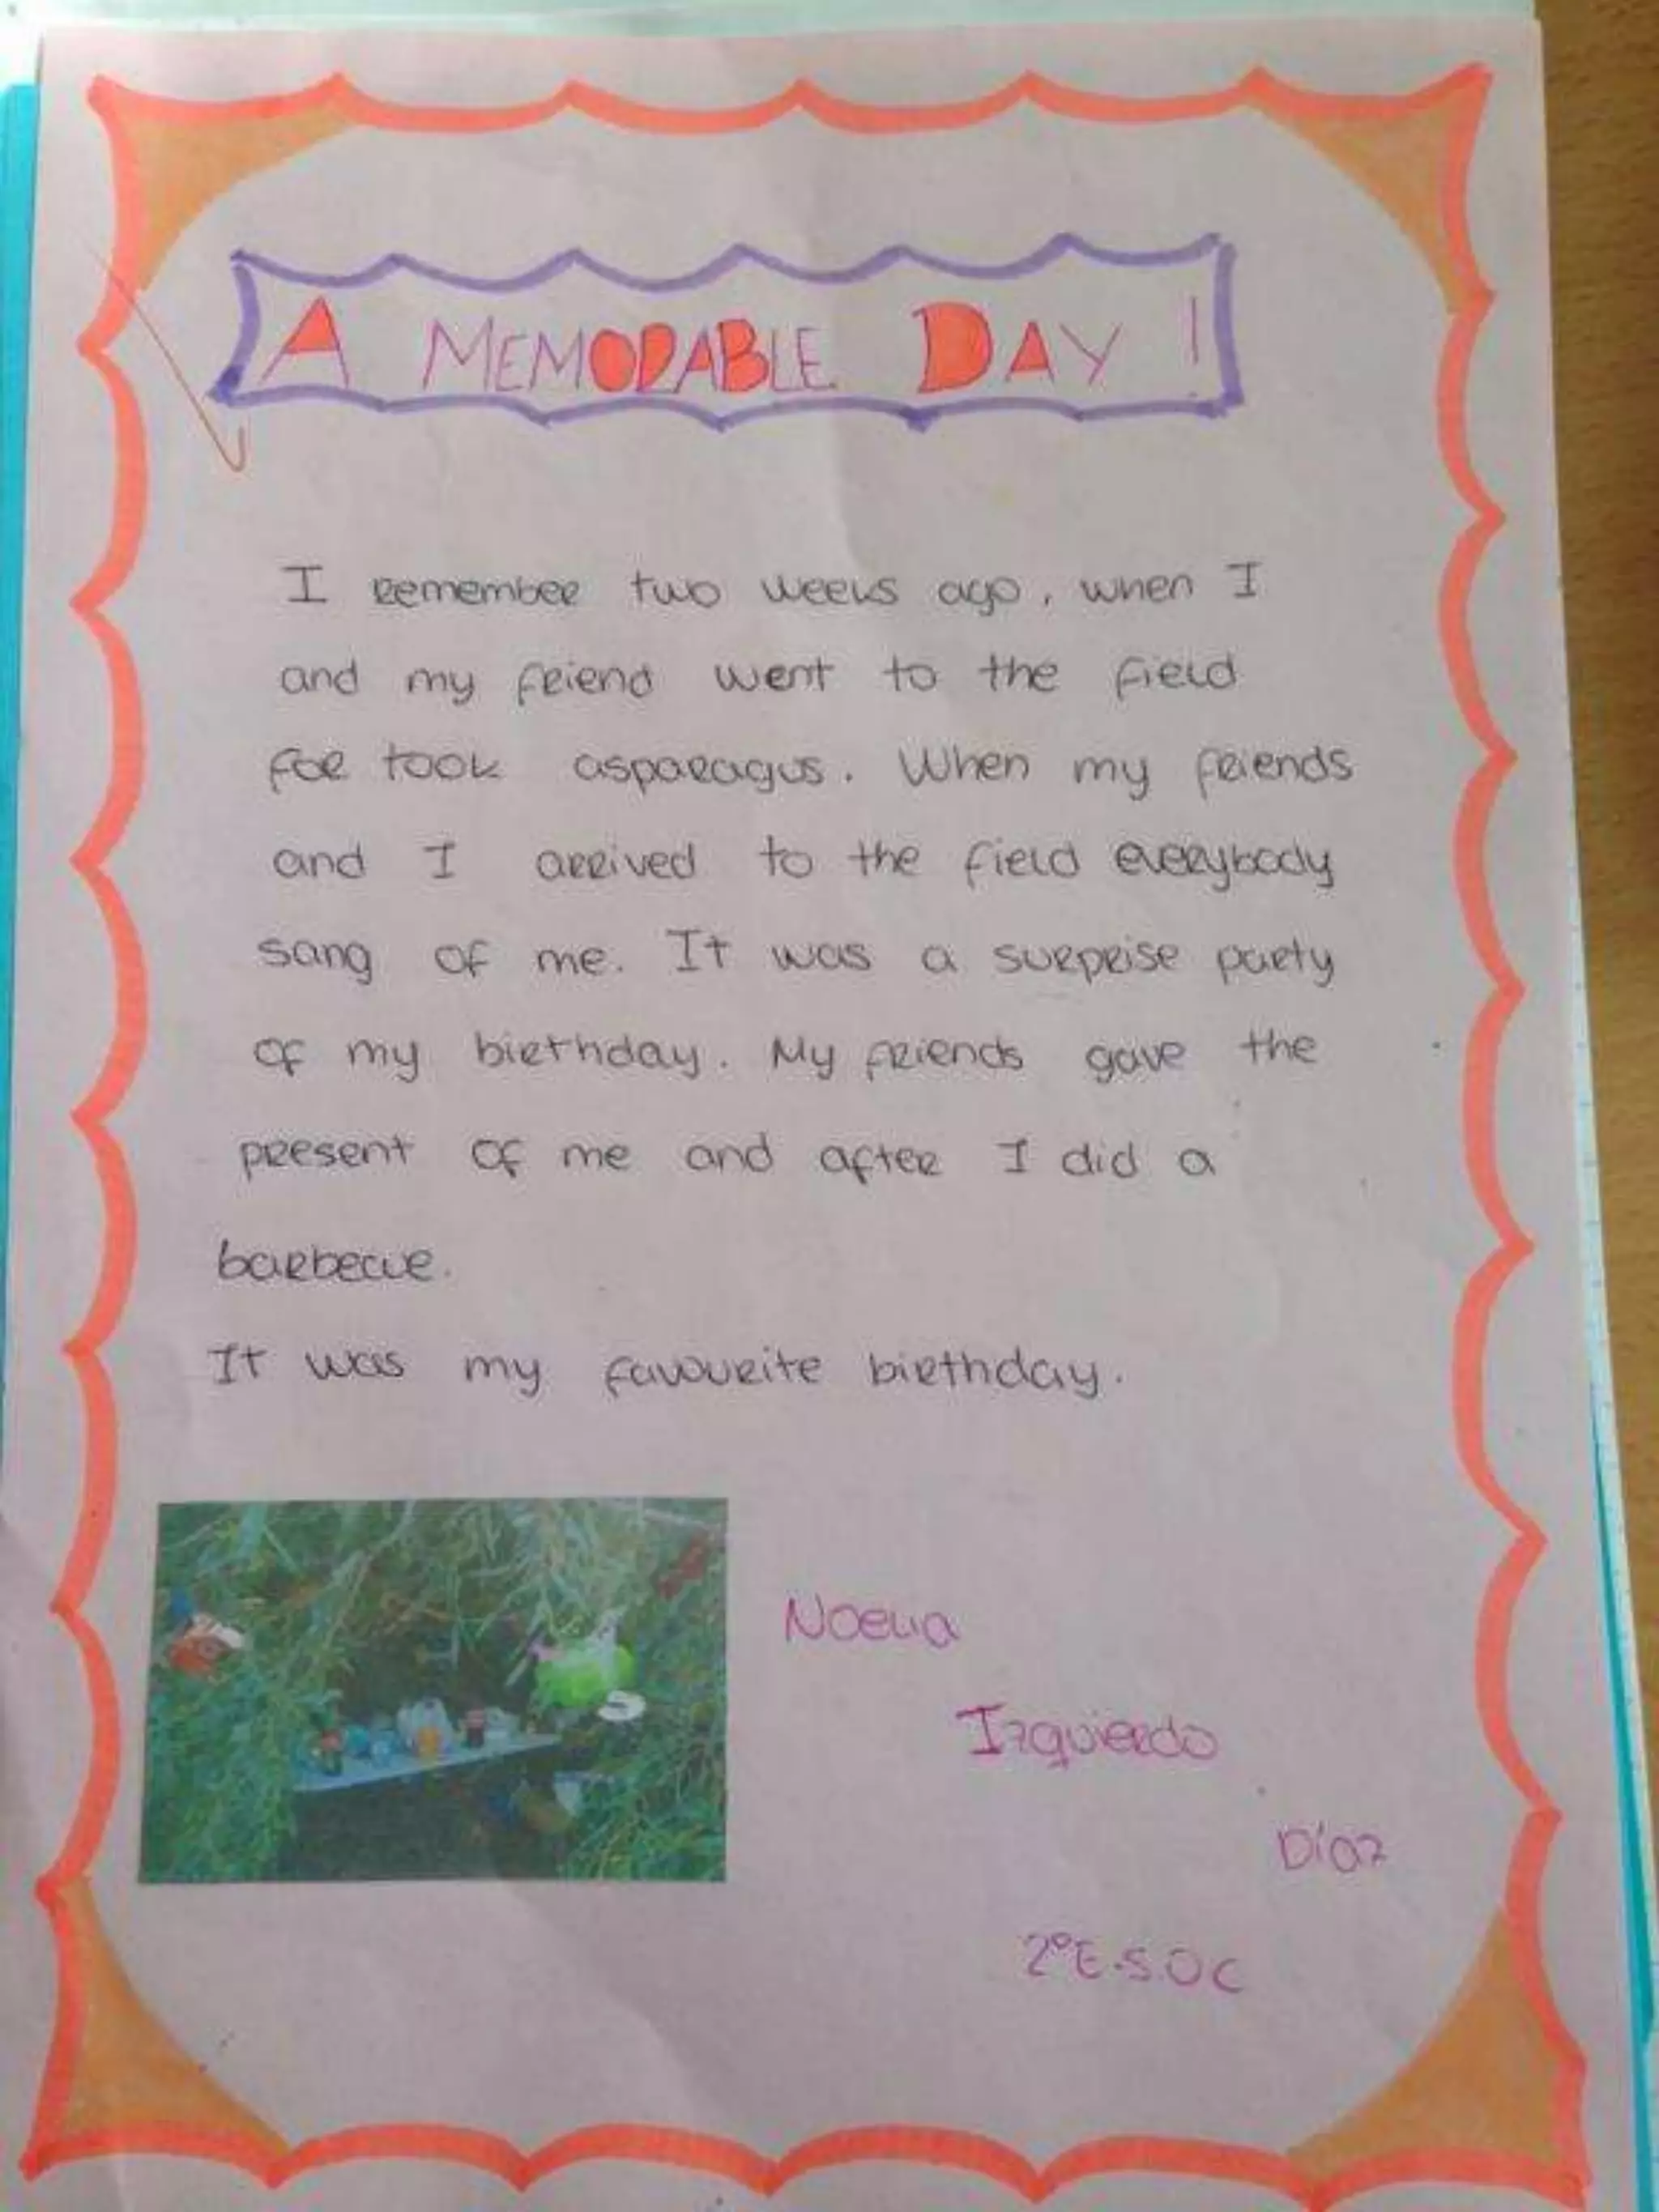 A MEMORABLE DAY !
I remember two weeks ago, when I
and my friend went to the field
for took asparagus. When my friends
and I arrived to the field everybody
sang of me. It was a surprise party
of my birthday. My friends gave the
present of me and after I did a
barbecue.
It was my favourite birthday.
Noelia
Izquierdo
Díaz
2ºE.S.O C